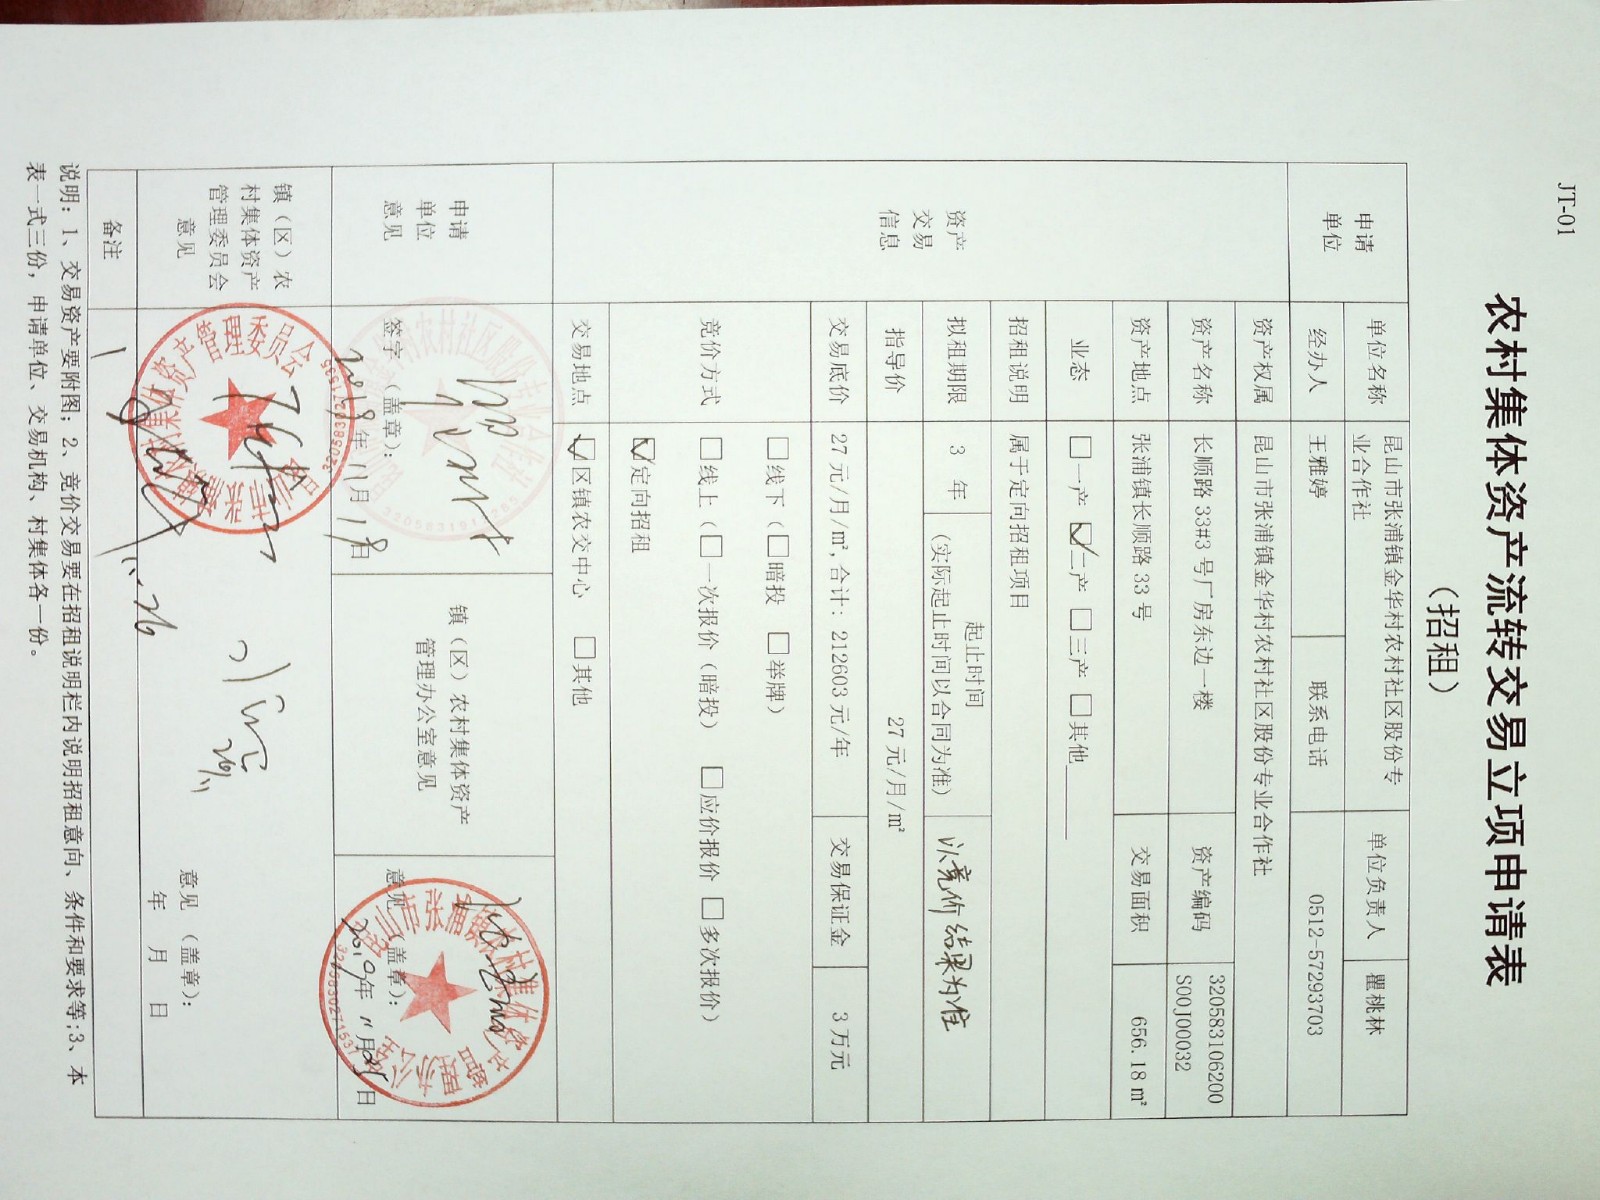 JT-01
农村集体资产流转交易立项申请表
（招租）
申请
单位
单位名称
昆山市张浦镇金华村农村社区股份专
业合作社
单位负责人
瞿桃林
经办人
王雅婷
联系电话
0512-57293703
资产
交易
信息
资产权属
昆山市张浦镇金华村农村社区股份专业合作社
资产名称
长顺路 33#3 号厂房东边一楼
资产编码
320583106200
S00J00032
资产地点
张浦镇长顺路 33 号
交易面积
656.18 ㎡
业态
□一产 ☑二产 □三产 □其他
招租说明
属于定向招租项目
拟租期限
3 年
起止时间
（实际起止时间以合同为准）
以竞价结果为准
指导价
27 元/月/㎡
交易底价
27 元/月/㎡，合计：212603 元/年
交易保证金
3 万元
竞价方式
□线下（□暗投 □举牌）
□线上（□一次报价（暗投） □应价报价 □多次报价）
☑定向招租
交易地点
☑区镇农交中心 □其他
申请
单位
意见
签字（盖章）：
2019年 11月 19日
镇（区）农村集体资产
管理办公室意见
意见（盖章）：
2019年 11月25日
镇（区）农
村集体资产
管理委员会
意见
意见（盖章）：
年 月 日
11.26
备注
说明：1、交易资产要附图；2、竞价交易要在招租说明栏内说明招租意向、条件和要求等;3、本
表一式三份，申请单位、交易机构、村集体各一份。